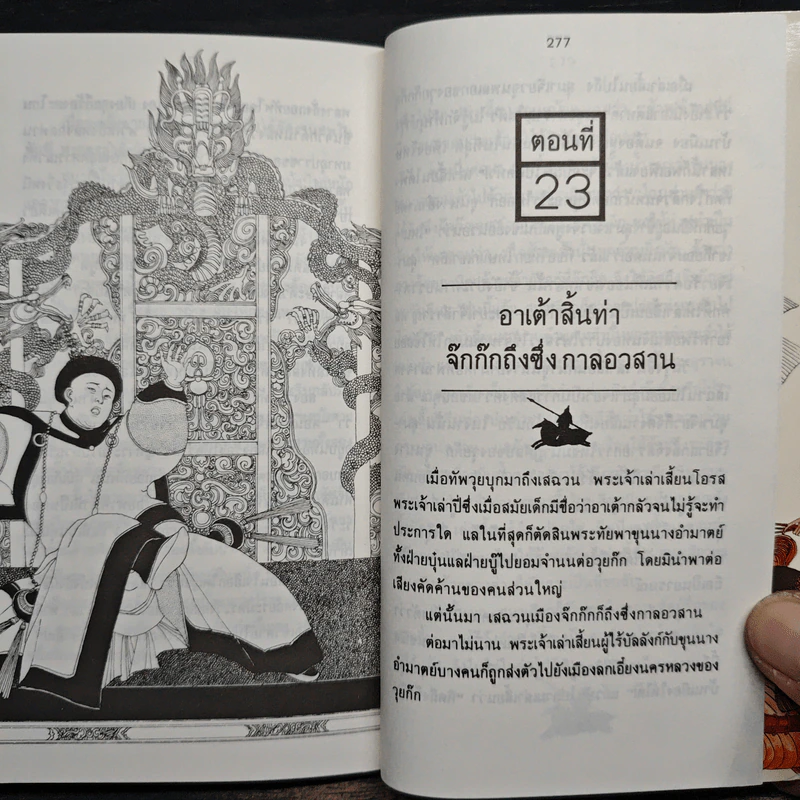 277
ตอนที่
23
อาเต้าสิ้นท่า
จ๊กก๊กถึงซึ่งกาลอวสาน
เมื่อทัพวุยบุกมาถึงเสฉวน พระเจ้าเล่าเสี้ยนโอรส
พระเจ้าเล่าปี่ซึ่งเมื่อสมัยเด็กมีชื่อว่าอาเต้ากลัวจนไม่รู้จะทำ
ประการใด แลในที่สุดก็ตัดสินพระทัยพาขุนนางอำมาตย์
ทั้งฝ่ายบุ๋นแลฝ่ายบู๊ไปยอมจำนนต่อวุยก๊ก โดยมินำพาต่อ
เสียงคัดค้านของคนส่วนใหญ่
แต่นั้นมา เสฉวนเมืองจ๊กก๊กก็ถึงซึ่งกาลอวสาน
ต่อมาไม่นาน พระเจ้าเล่าเสี้ยนผู้ไร้บัลลังก์กับขุนนาง
อำมาตย์บางคนก็ถูกส่งตัวไปยังเมืองลกเอี๋ยงนครหลวงของ
วุยก๊ก